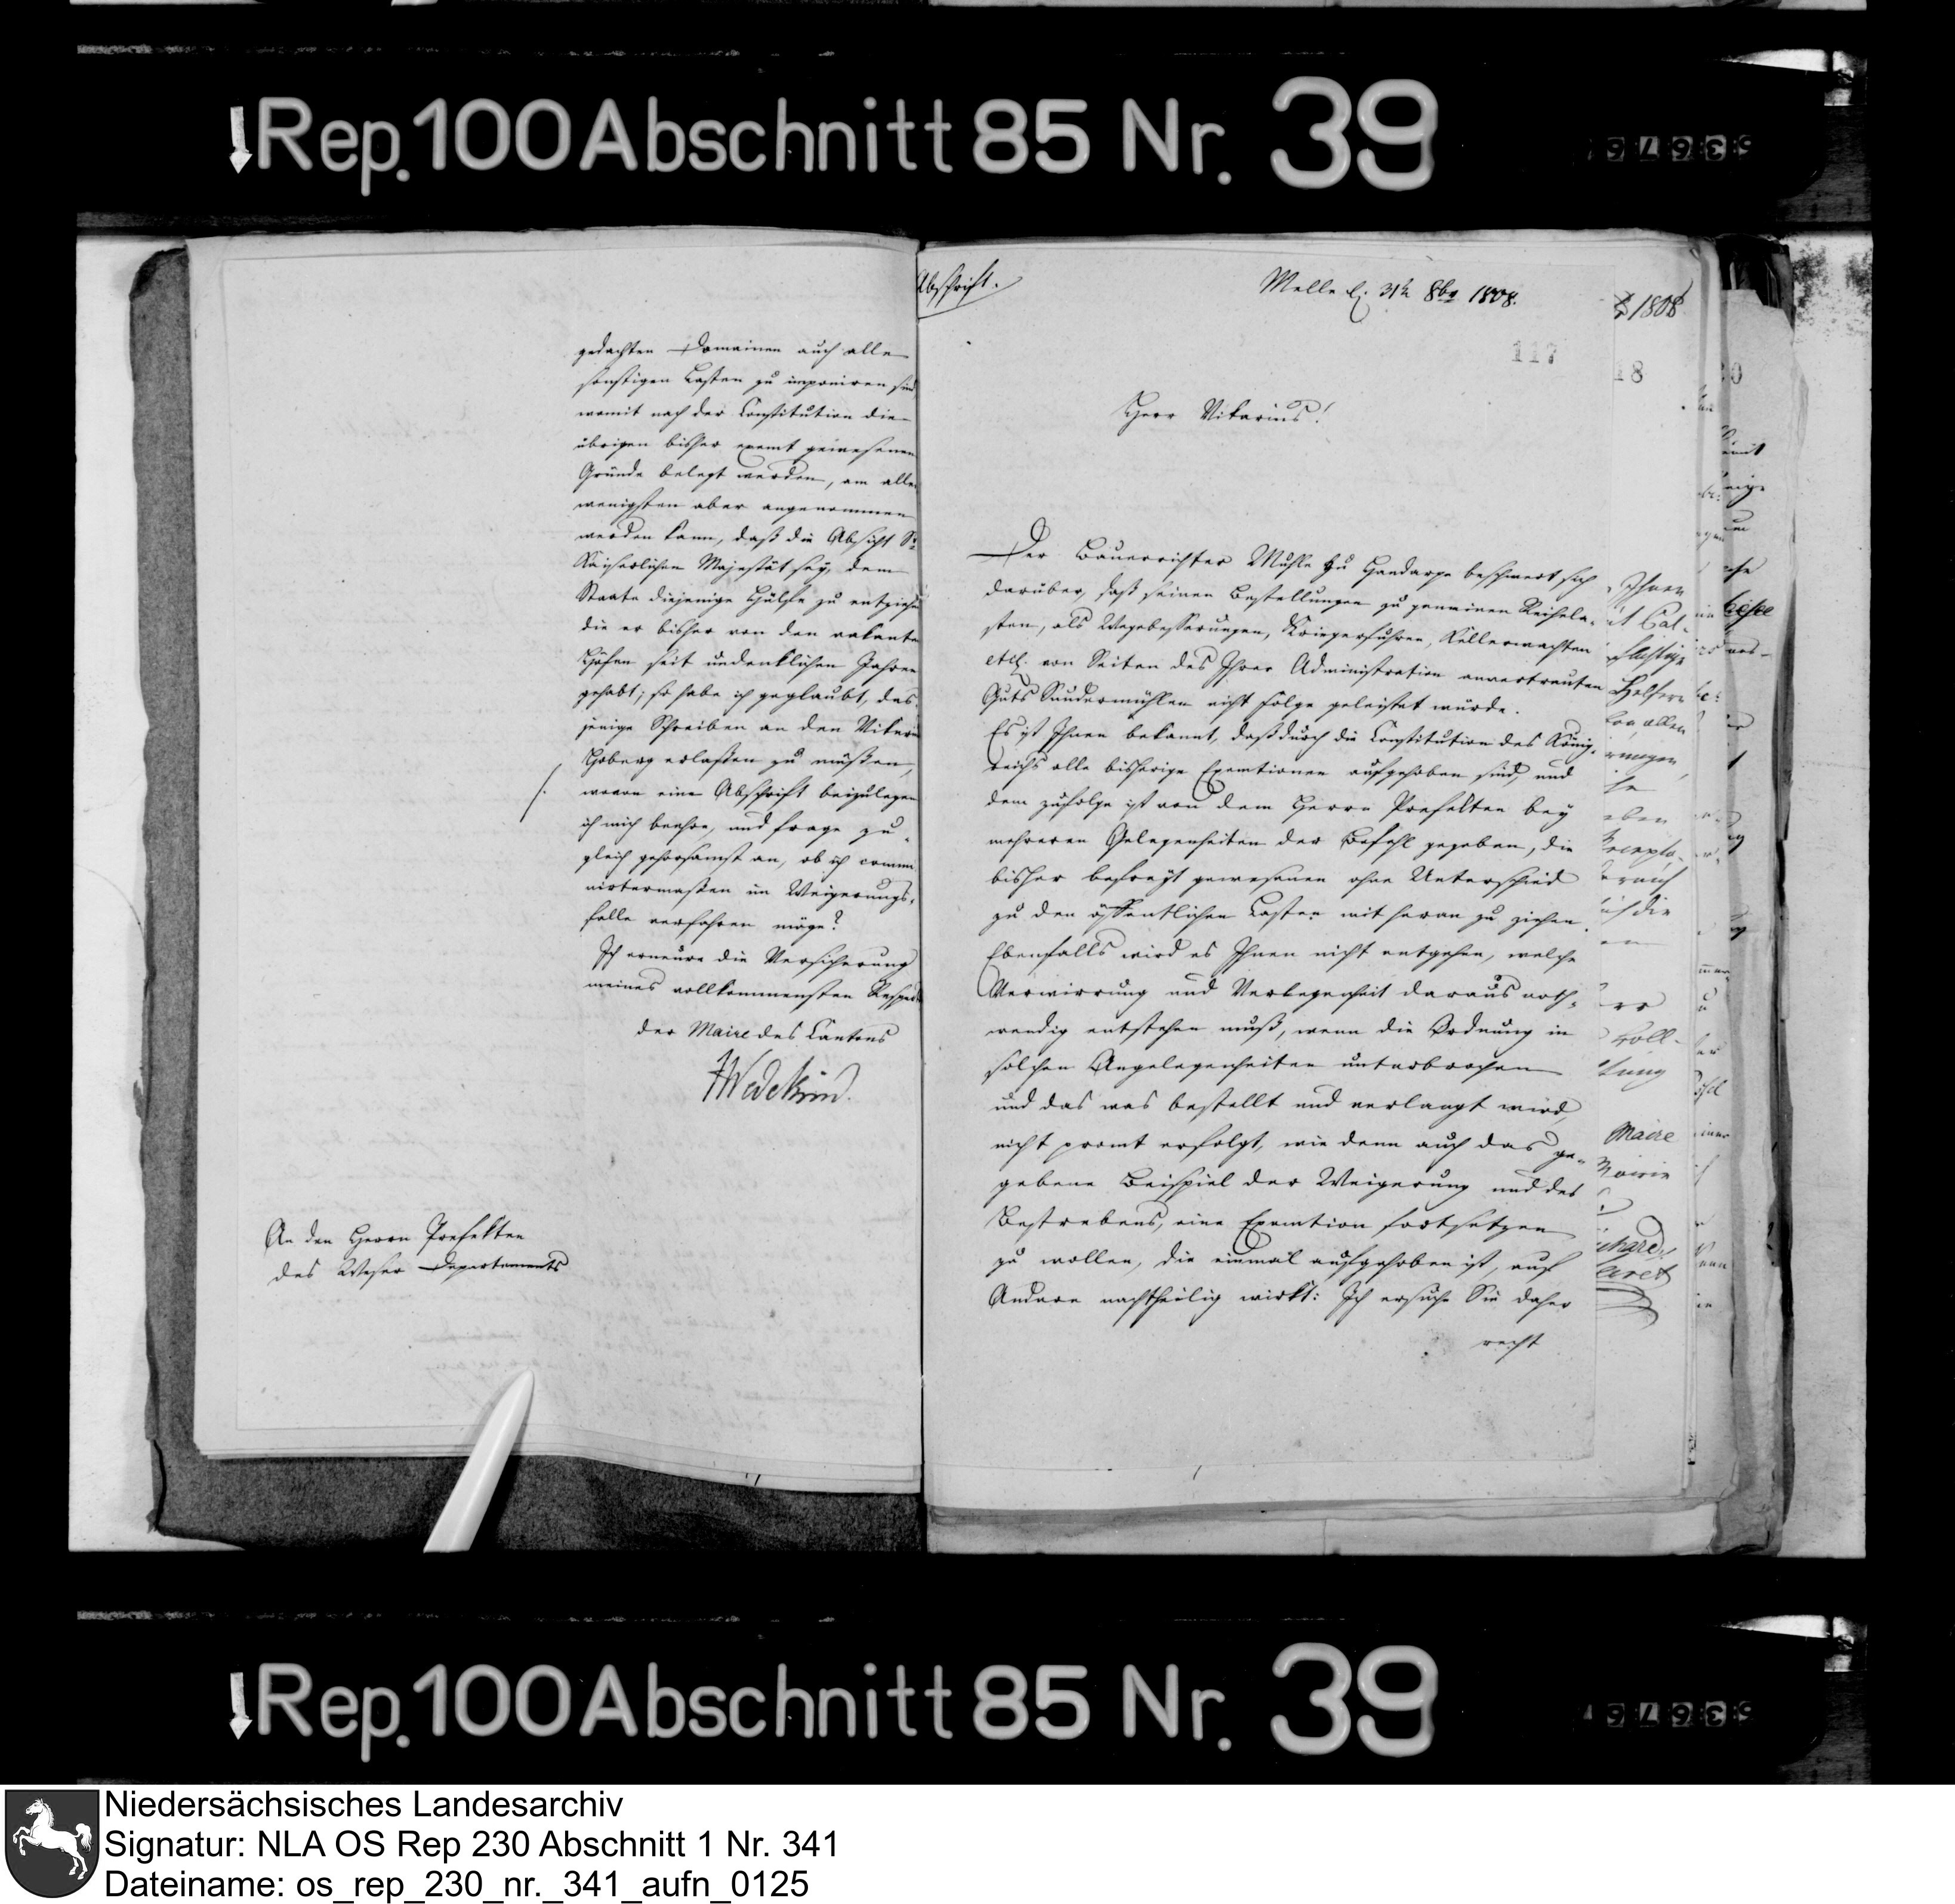 Rep. 100 Abschnitt 85 Nr. 39
gedachten Domainen auch alle
sonstigen Lasten zu imponiren sind
womit nach der Constitution die
übrigen bisher exemt gewesenen
Gründe belegt werden, am aller
wenigsten aber angenommen
werden kann, daß die Absicht Sr
Kaiserlichen Majestät sey, dem
Staate diejenige Hülfe zu entziehen
die er bisher von den vakanten
Höfen seit undenklichen Jahren
gehabt; so habe ich geglaubt, das-
jenige Schreiben an den Vikarius
erlaßen zu müßen,
wovon eine Abschrift beizulegen
ich mich beehre, und frage zu-
gleich gehorsamst an, ob ich commi-
nirtermaßen im Weigerungs-
falle verfahren möge?
Ich erneure die Versicherung
meines vollkommensten Respects
der Maire des Cantons
Wedekind.
An den Herrn Prefekten
des Weser Departements
Abschrift.
Melle d. 31t 8br 1808.
117
Herr Vikarius!
Der Bauerrichter zu beschwert sich
darüber, daß seinen Bestellungen zu gemeinen Reihela-
sten, als Wegebesserungen, Kriegerfuhren, Kellerwachten
etc. von Seiten des Ihrer Administration anvertrauten
Guts Sondermühlen nicht Folge geleistet würde.
Es ist Ihnen bekannt, daß durch die Constitution des König-
reichs alle bisherige Exemtionen aufgehoben sind, und
dem zufolge ist von dem Herrn Prefekten bey
mehreren Gelegenheiten der Befehl gegeben, die
bisher befreyt gewesenen ohne Unterschied
zu den öffentlichen Lasten mit heran zu ziehen.
Ebenfalls wird es Ihnen nicht entgehen, welche
Verwirrung und Verlegenheit daraus noth-
wendig entstehen muß, wenn die Ordnung in
solchen Angelegenheiten unterbrochen
und das was bestellt und verlangt wird,
nicht promt erfolgt, wie denn auch das ge-
gebene Beispiel der Weigerung und des
Bestrebens, eine Exemtion fortsetzen
zu wollen, die einmal aufgehoben ist, auf
Andere nachtheilig wirkt: Ich ersuche Sie daher
recht
1808
18
Ihnen
Maire
Rep. 100 Abschnitt 85 Nr. 39
Niedersächsisches Landesarchiv
Signatur: NLA OS Rep 230 Abschnitt 1 Nr. 341
Dateiname: os_rep_230_nr._341_aufn_0125